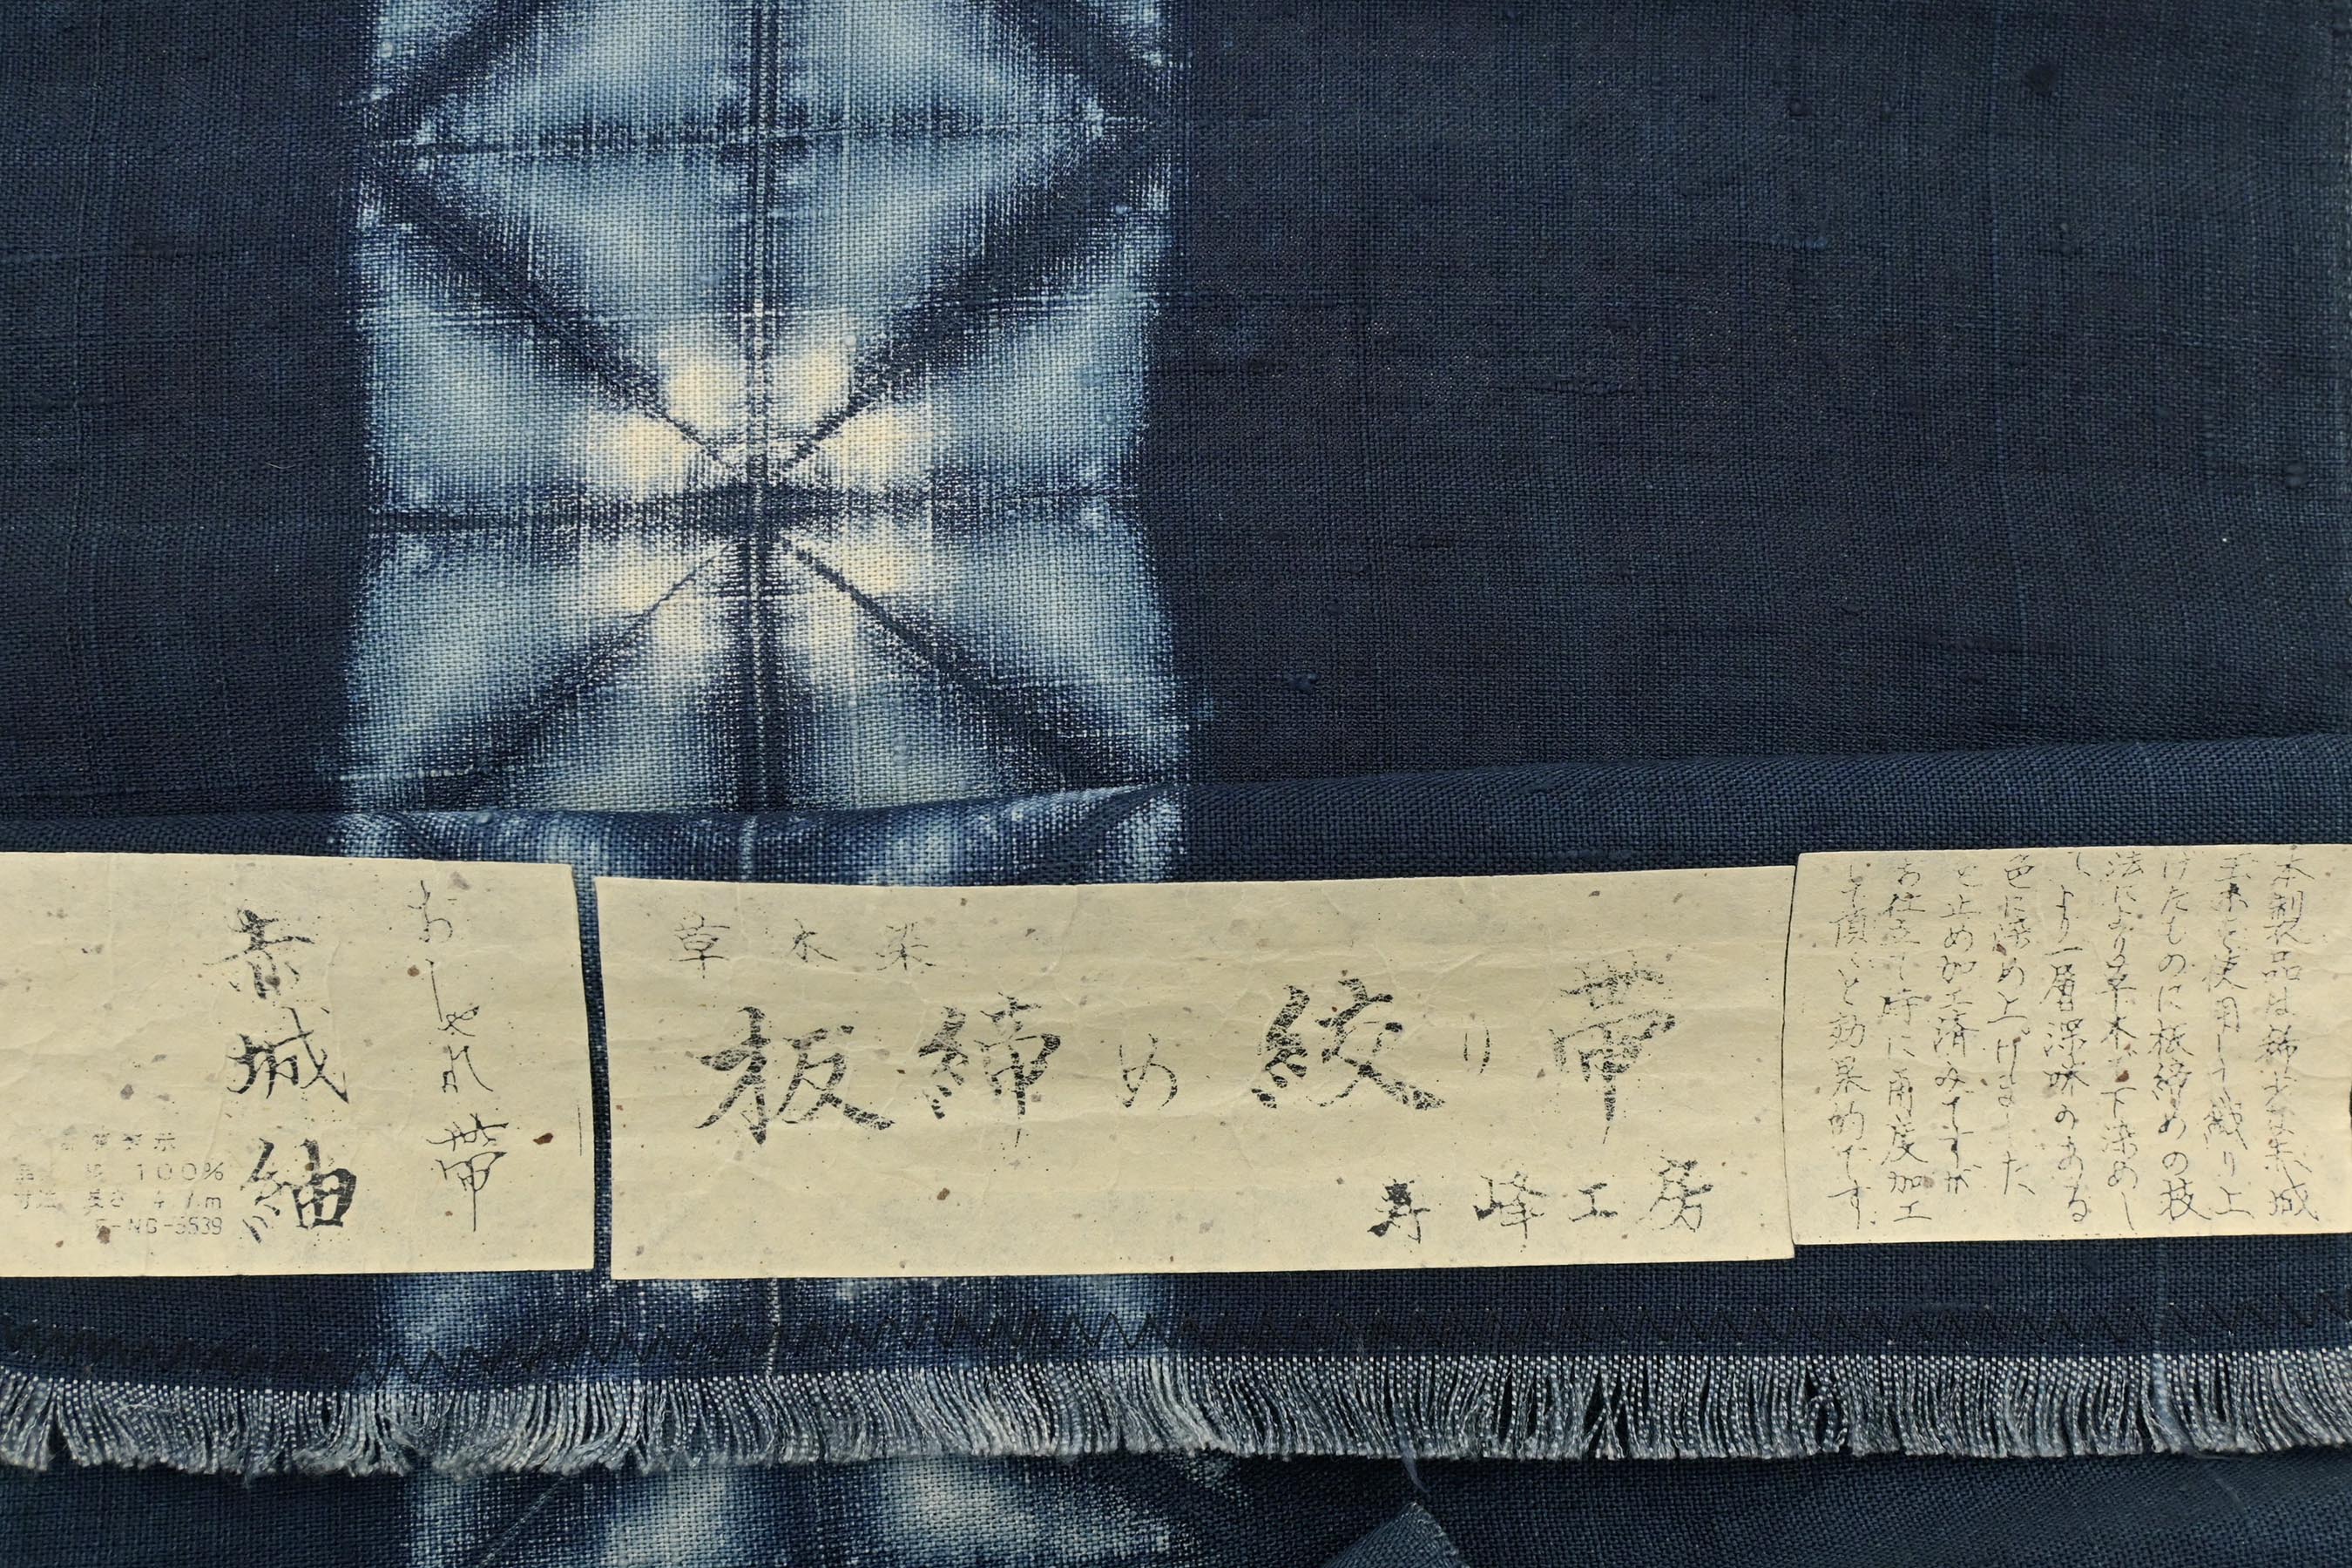 おしゃれ帯
赤城紬
100%
草木染
板締め絞り帯
寿峰工房
本製品は
玉糸を使用して織り上
げたものに板締めの技
法により草木で下染めし
て、より一層深味のある
色に染め上げました
と止め加工済みですが
お仕立て時に再度加工
して頂くと効果的です